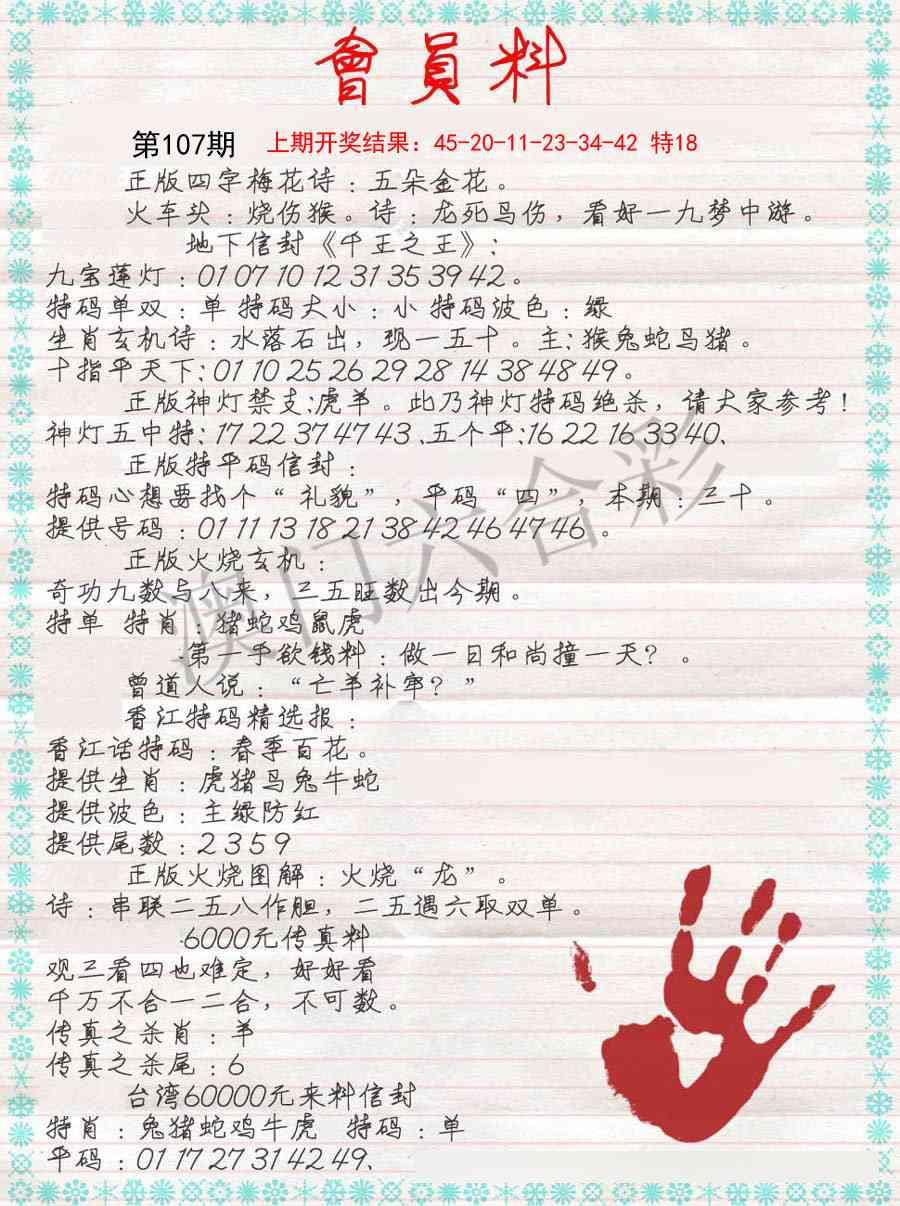 會員料
第107期 上期开奖结果：45-20-11-23-34-42 特18
正版四字梅花诗：五朵金花。
火车头：烧伤猴。诗：龙死鸟伤，看好一九梦中游。
地下信封《千王之王》：
九宝莲灯：01 07 10 12 31 35 39 42。
特码单双：单 特码大小：小 特码波色：绿
生肖玄机诗：水落石出，现一五十。主：猴兔蛇马猪。
十指平天下：01 10 25 26 29 28 14 38 48 49。
正版神灯禁支：虎羊。此乃神灯特码绝杀，请大家参考！
神灯五中特：17 22 37 47 43、五个平：16 22 16 33 40、
正版特平码信封：
特码心想要找个“礼貌”，平码“四”，本期：三十。
提供号码：01 11 13 18 21 38 42 46 47 46。
正版火烧玄机：
奇功九数与八来，三五旺数出今期。
特单 特肖：猪蛇鸡鼠虎
·第一手欲钱料：做一日和尚撞一天？。
曾道人说：“亡羊补牢？”
香江特码精选报：
香江话特码：春季百花。
提供生肖：虎猪马兔牛蛇
提供波色：主绿防红
提供尾数：2 3 5 9
正版火烧图解：火烧“龙”。
诗：串联二五八作胆，二五遇六取双单。
·6000元传真料
观三看四也难定，好好看
千万不合一二合，不可数。
传真之杀肖：羊
传真之杀尾：6
台湾60000元来料信封
特肖：兔猪蛇鸡牛虎 特码：单
平码：01 17 27 31 42 49、
澳门六合彩